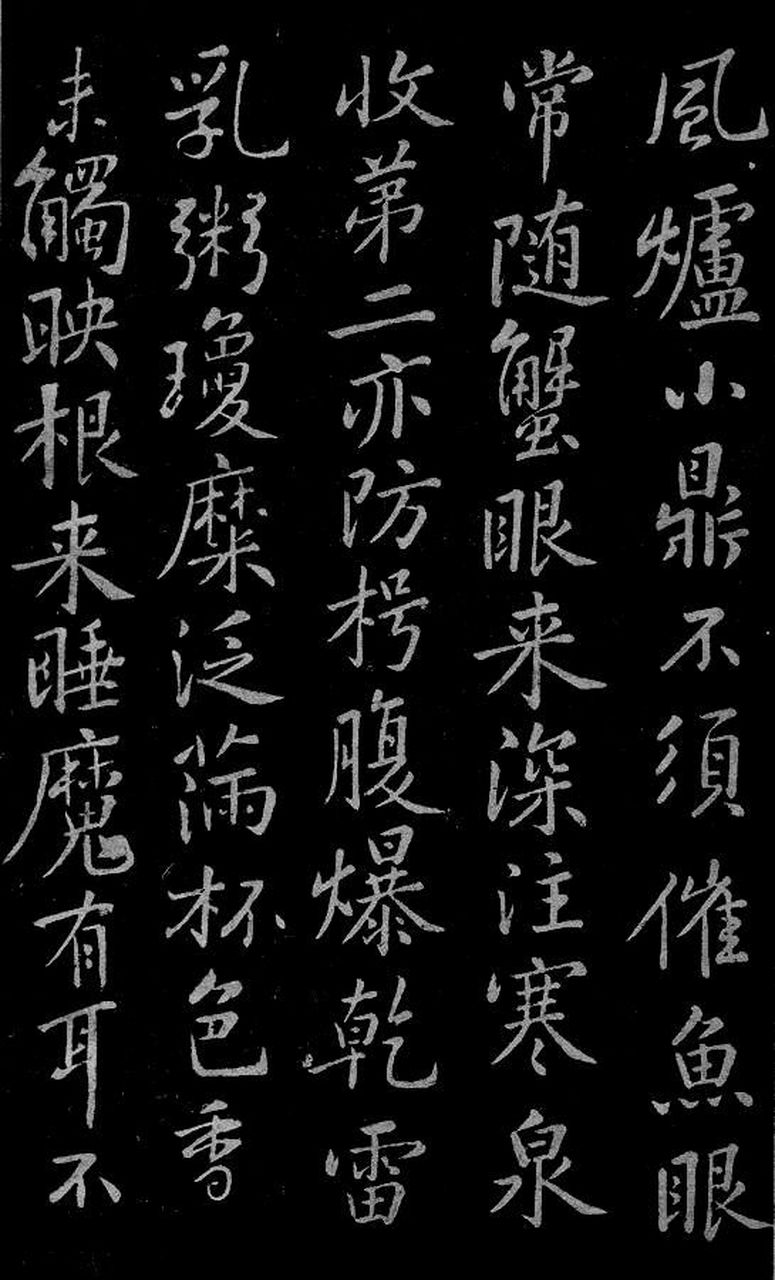 風爐小鼎不須催魚眼
常随蟹眼来深注寒泉
收苐二亦防枵腹爆乾雷
乳粥瓊糜泛滿杯色香
未觸映根来睡魔有耳不